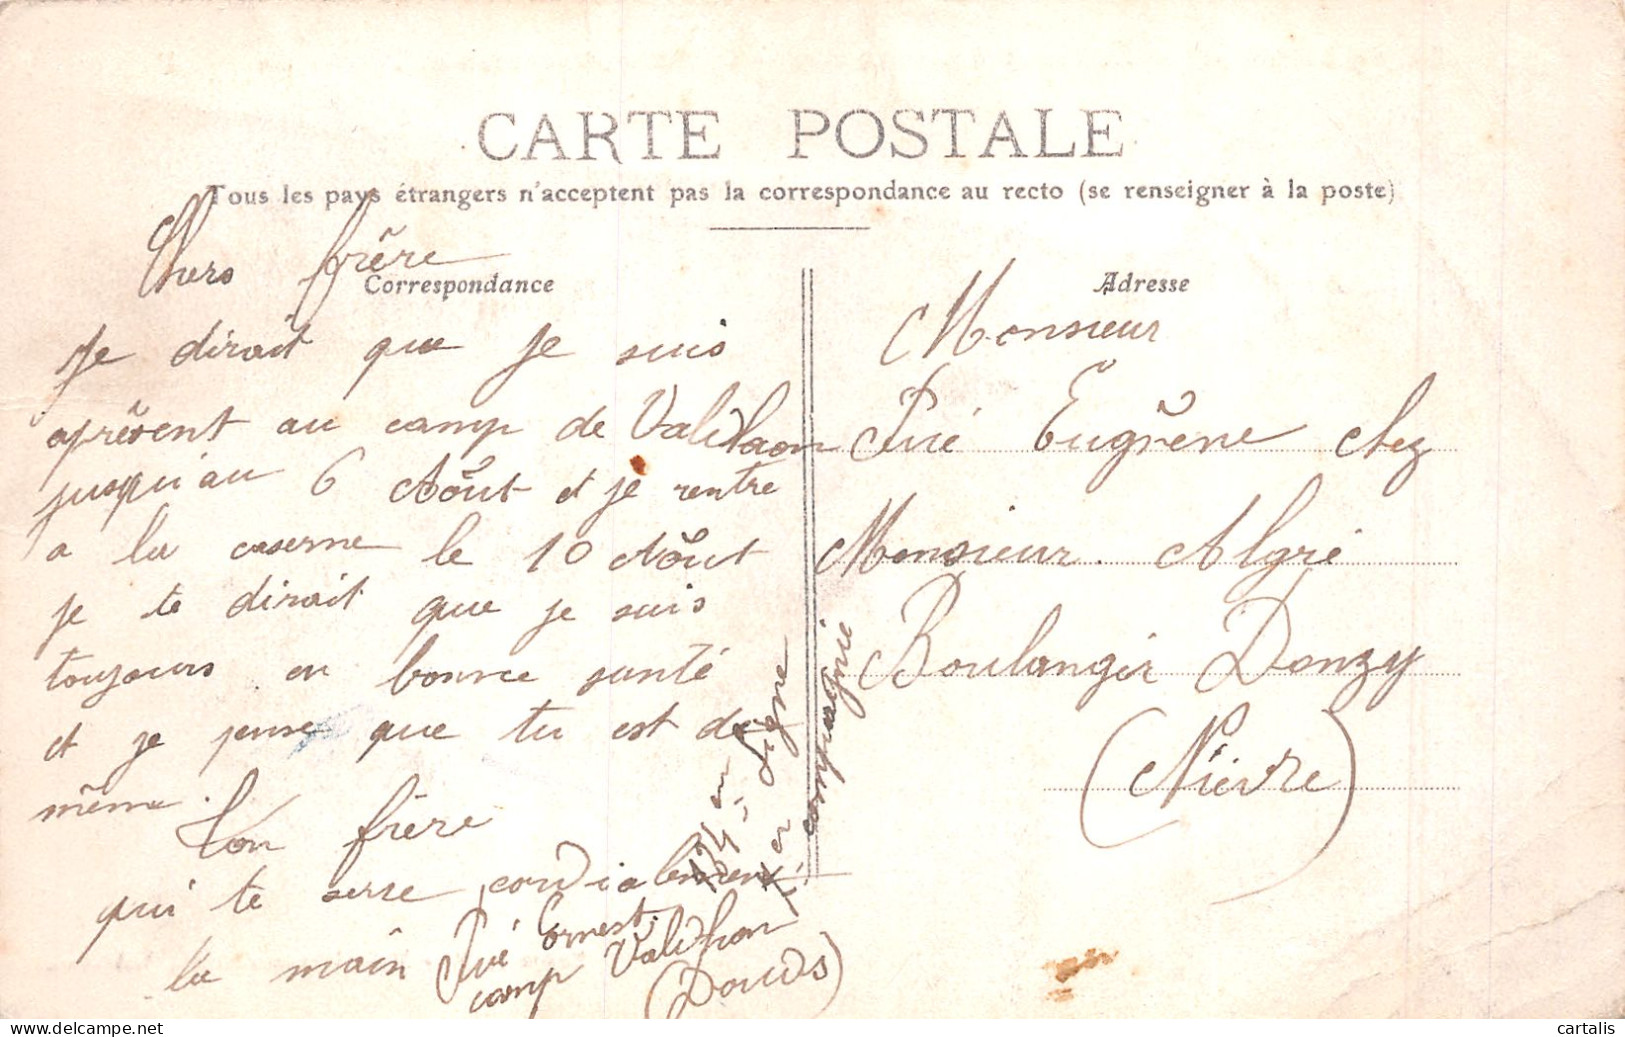 CARTE POSTALE
Tous les pays étrangers n'acceptent pas la correspondance au recto (se renseigner à la poste)
Chers frêre
Correspondance
Je dirait que je suis
aprêsent au camp de Valdhaon
jusqu'au 6 Aôut et je rentre
a la caserne le 10 Aôut
je te dirait que je suis
toujours en bonne santé
et je pense que tu est de
même.
Ton frère
qui te serre cordialement
la main
Pué Ernest.
camp Valdhon
(Doubs)
134 em Ligne
1 er compagnie
Adresse
Monsieur
Pué Eugêne chez
Monsieur Algré
Boulanger Donzy
(Nièvre)
cartalis
www.delcampe.net